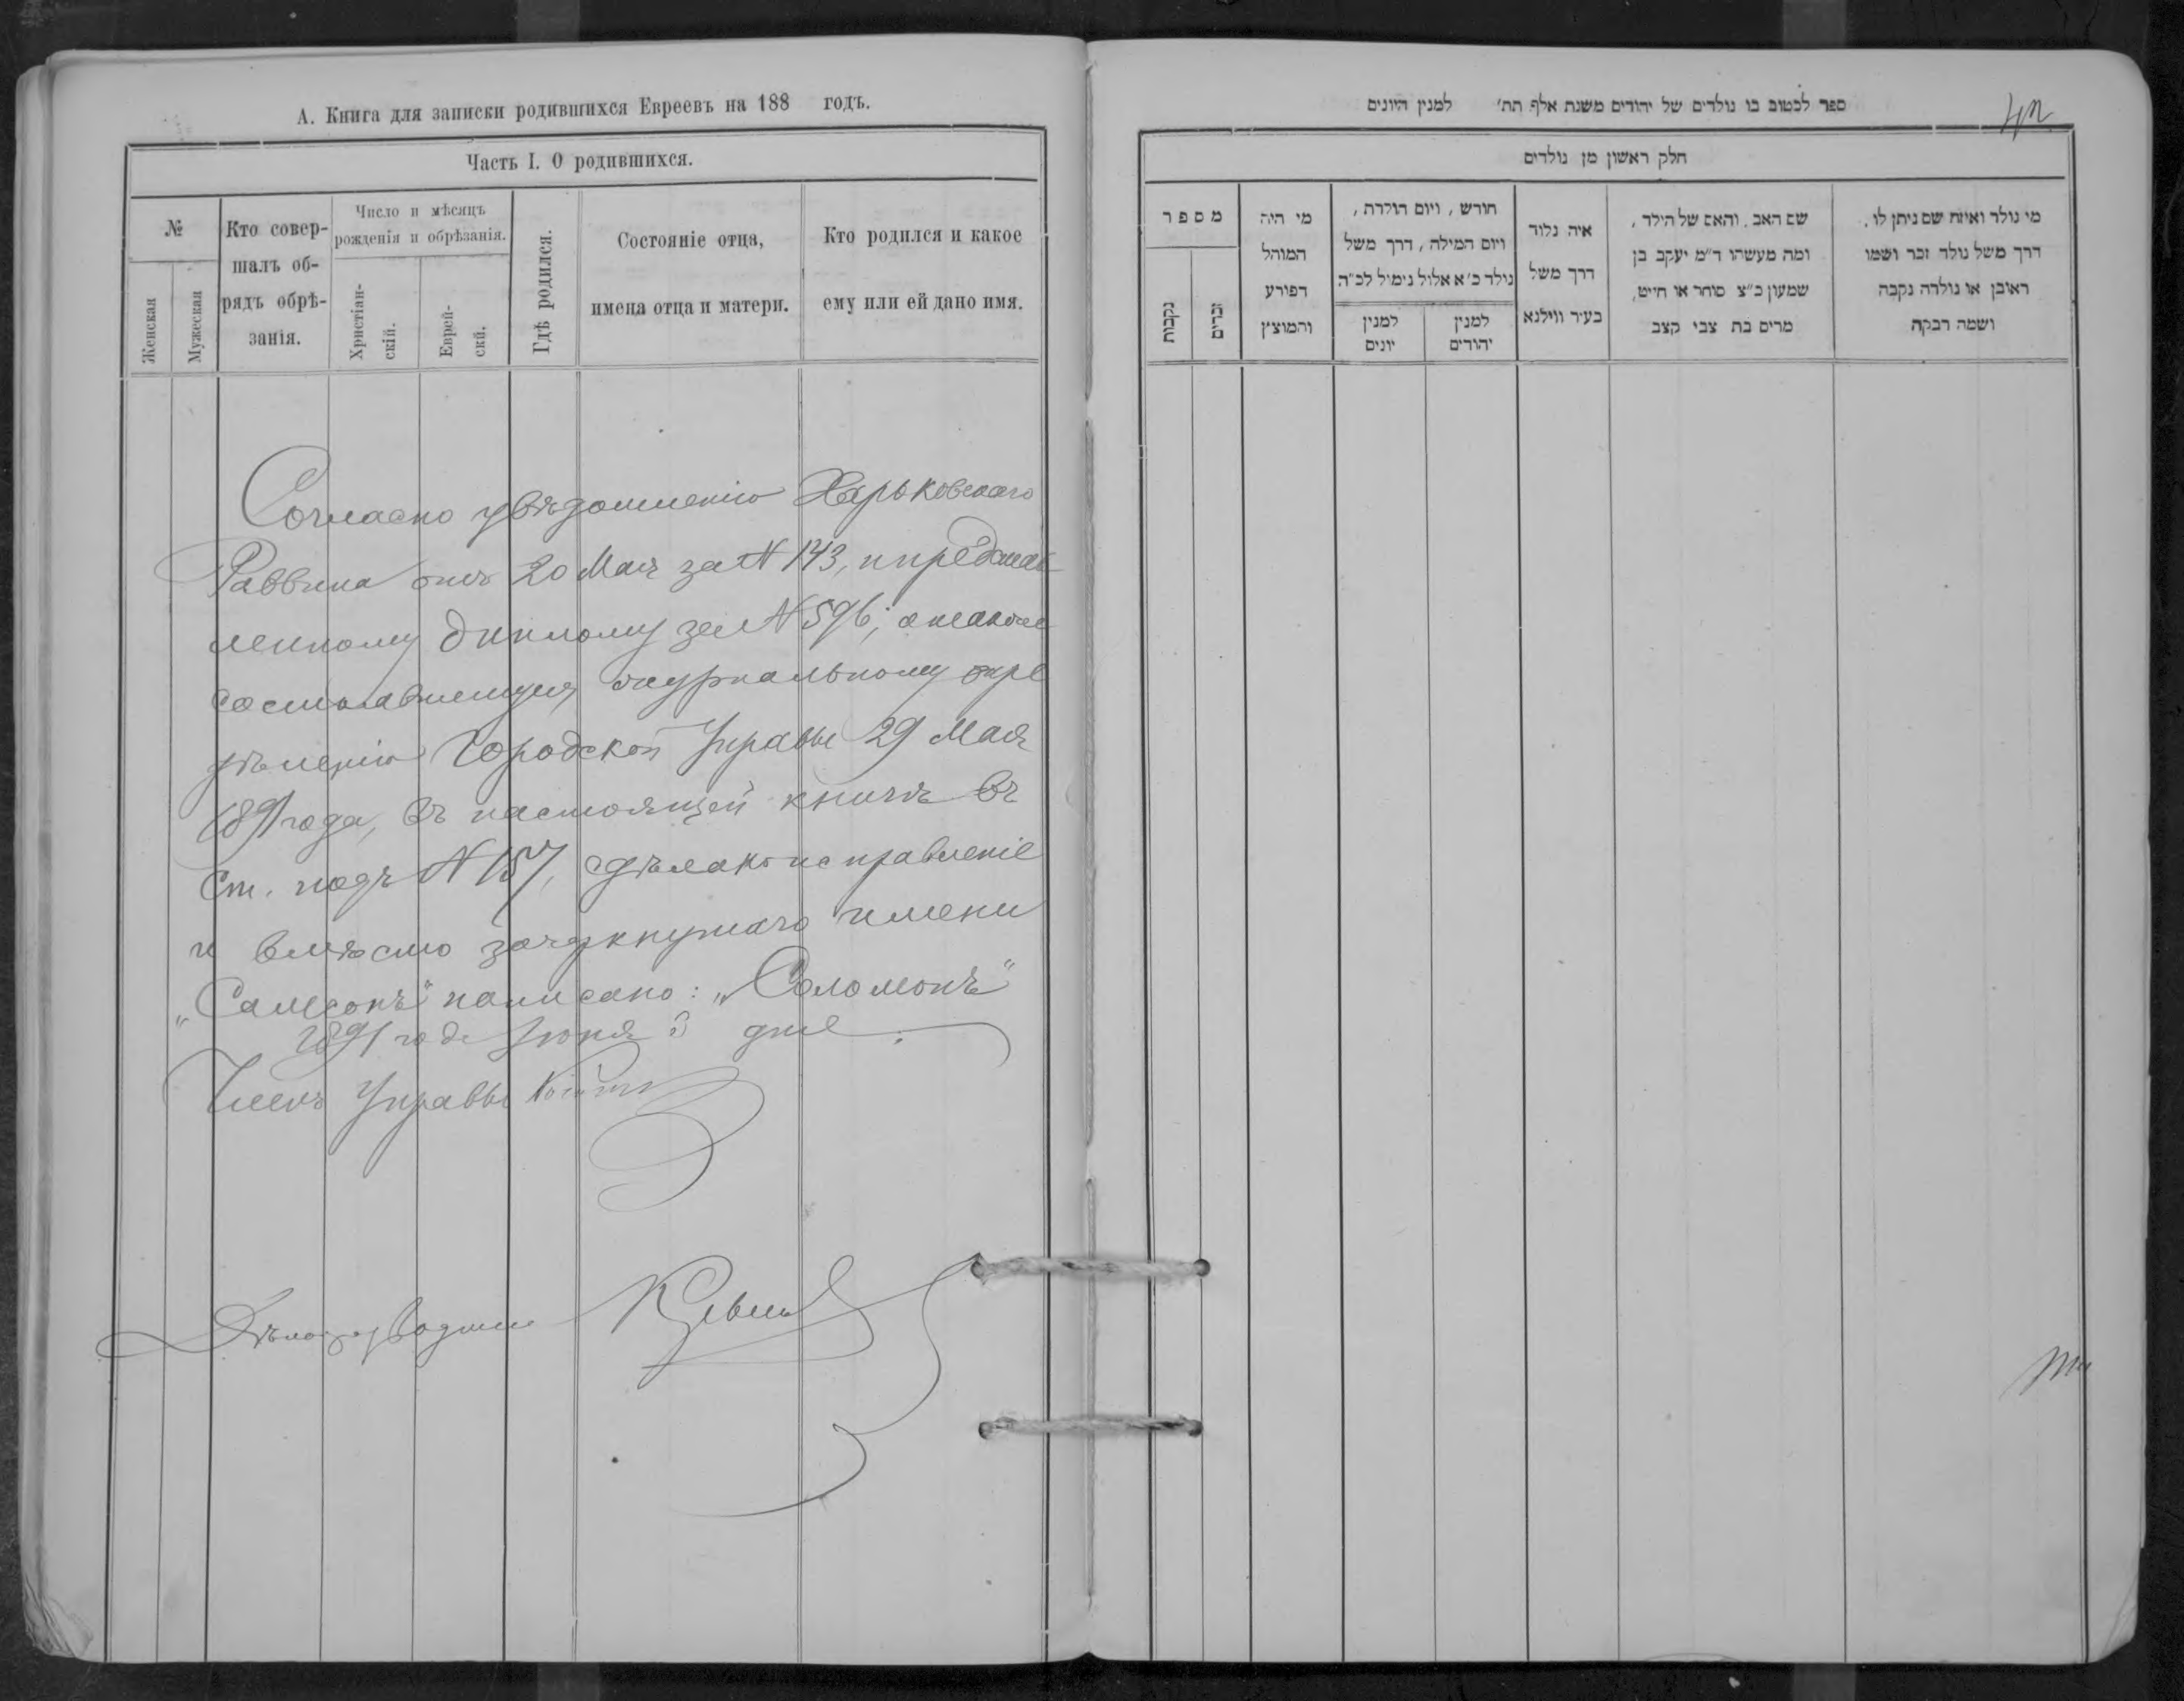 А. Книга для записки родившихся Евреевъ на 188 годъ.
Часть I. О родившихся.
№
Женская
Мужеская
Кто совер-
шалъ об-
рядъ обрѣ-
занія.
Число и мѣсяцъ
рожденія и обрѣзанія.
Христіан-
скій.
Еврей-
скй.
Гдѣ родился.
Состояніе отца,
имена отца и матери.
Кто родился и какое
ему или ей дано имя.
Согласно увѣдомленію Харьковскаго
Раввина отъ 20 Мая за N 143, и представ
ленному диплому за N 596; а также
состоявшемуся журнальному опре
дѣленію Городской Управы 29 Мая
1891 года, въ настоящей книгѣ въ
Ст. подъ N 157, сдѣлано исправленіе
и вмѣсто зачеркнутаго имени
„Самсонъ" написано: „Соломонъ"
1891 года Іюня 3 дня.
Членъ Управы
Дѣлопроизводитель
ספר לכטוב בו נולדים של יהודים משנת אלף תת' למנין היונים
42
חלק ראשון מן נולדים
מי נולד ואיזה שם ניתן לו,
דרך משל נולד זכר ושמו
ראובן או נולדה נקבה
ושמה רבקה
שם האב, והאם של הילד,
ומה מעשהו ד"מ יעקב בן
שמעון כ"צ סוחר או חייט,
מרים בת צבי קצב
איה נלוד
דרך משל
בעיר ווילנא
חורש, ויום הולדת,
ויום המילה, דרך משל
נולד כ'א אלול נימול לכ"ה
למנין
יהודים
למנין
יונים
מי היה
המוהל
דפורע
והמוצץ
מספר
זכרים
נקבות